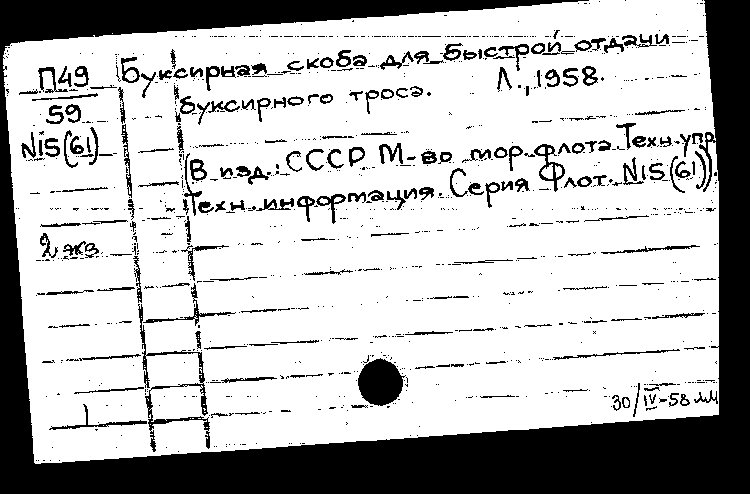 П49
59
N15(61)
2 экз
1
Буксирная скоба для быстрой отдачи
буксирного троса. Л., 1958.
(В изд.: СССР М-во мор. флота. Техн. упр.
Техн. информация. Серия Флот. N15(61)).
30/IV-58 лл